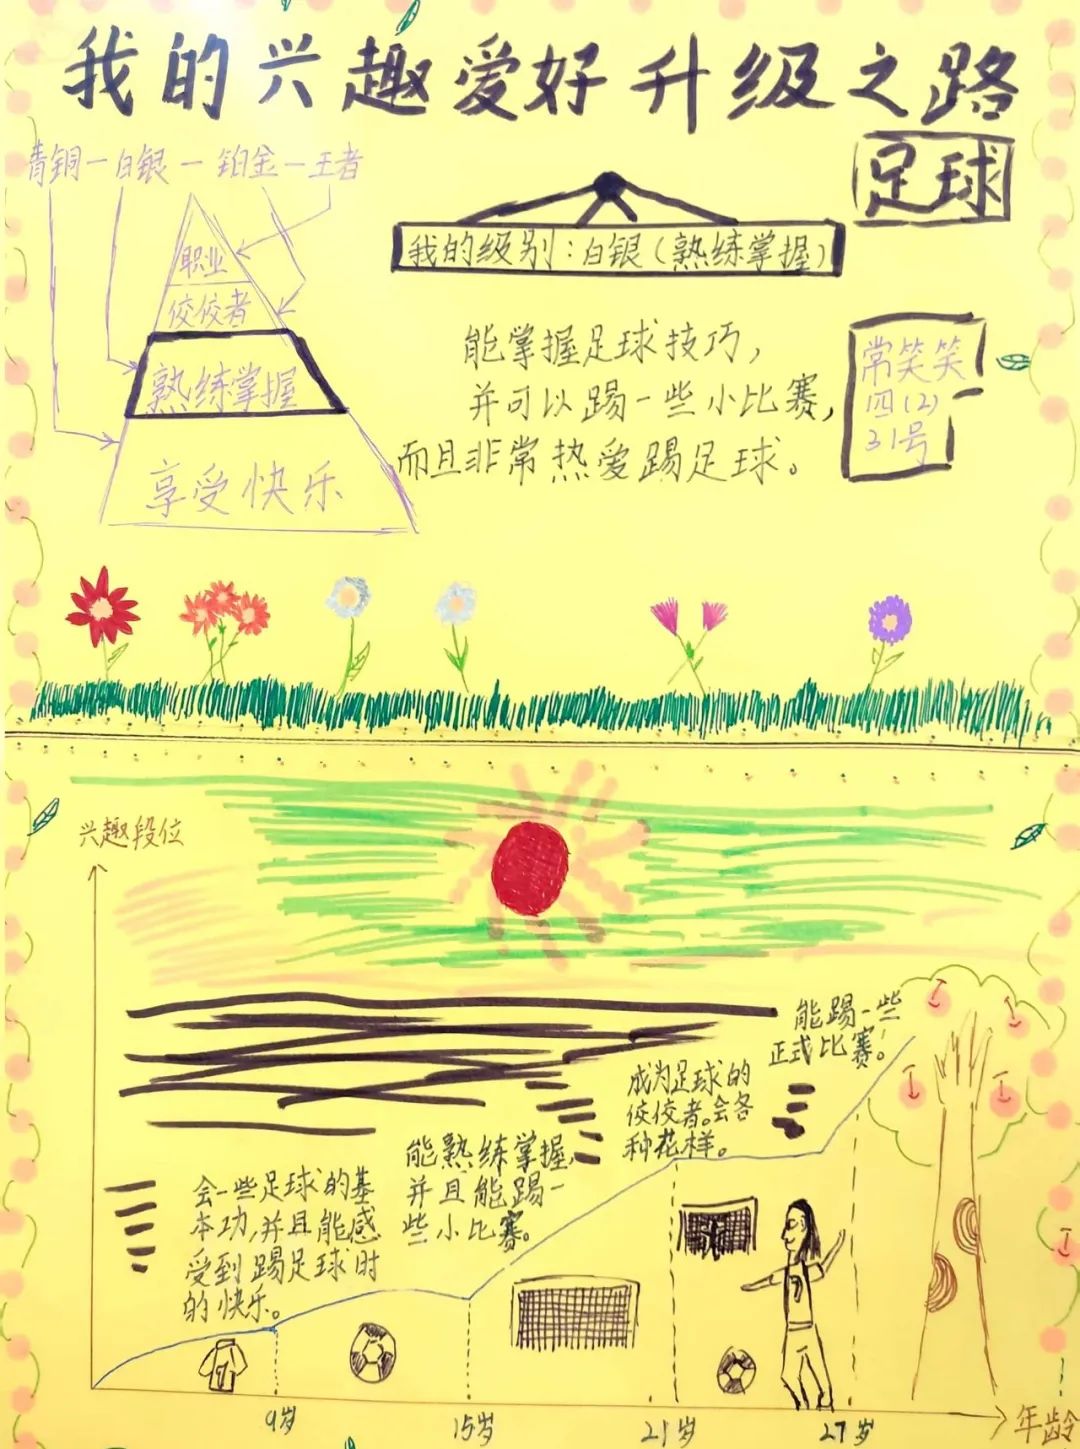 我的兴趣爱好升级之路
足球
青铜—白银—铂金—王者
职业
佼佼者
熟练掌握
享受快乐
我的级别：白银（熟练掌握）
能掌握足球技巧，
并可以踢一些小比赛，
而且非常热爱踢足球。
常笑笑
四(2)
31号
兴趣段位
会一些足球的基
本功，并且能感
受到踢足球时
的快乐。
能熟练掌握，
并且能踢一
些小比赛。
成为足球的
佼佼者。会各
种花样。
能踢一些
正式比赛。
7
7
9岁
15岁
21岁
27岁
年龄